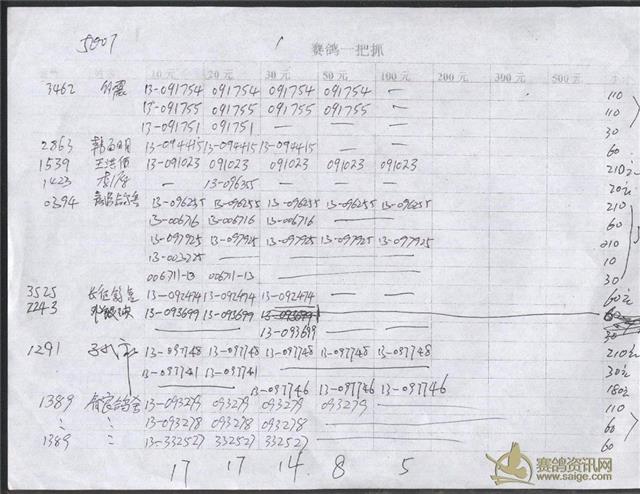 5007 1 赛鸽一把抓
10元 20元 30元 50元 100元 200元 300元 500元
3462 13-091754 091754 091754 091754 — 110
13-091755 091755 091755 091755 — 110
13-091751 091751 — — — 30
2863 13-094415 13-094415 13-094415 — — 60
1539 13-091023 091023 091023 091023 091023 210元
1423 — 13-096355 — — — 20元
0394 13-096255 13-096255 13-096255 13-096255 13-096255 210
13-006716 13-006716 13-006716 60
13-097925 13-097925 13-097925 13-097925 13-097925 210
13-003725 10
006711-13 006711-13 30
3525 13-092474 13-092474 13-092474 — 60元
2243 13-093699 13-093699 13-093699 60
13-093699 30
1291 13-097748 13-097748 13-097748 13-097748 13-097748 210元
13-097741 13-097741 30元
13-097746 13-097746 13-097746 180元
1389 13-093279 093279 093279 093279 110
13-093278 093278 093278 60
1389 13-332527 332527 332527 60
17 17 14 8 5
赛鸽资讯网
www.saige.com